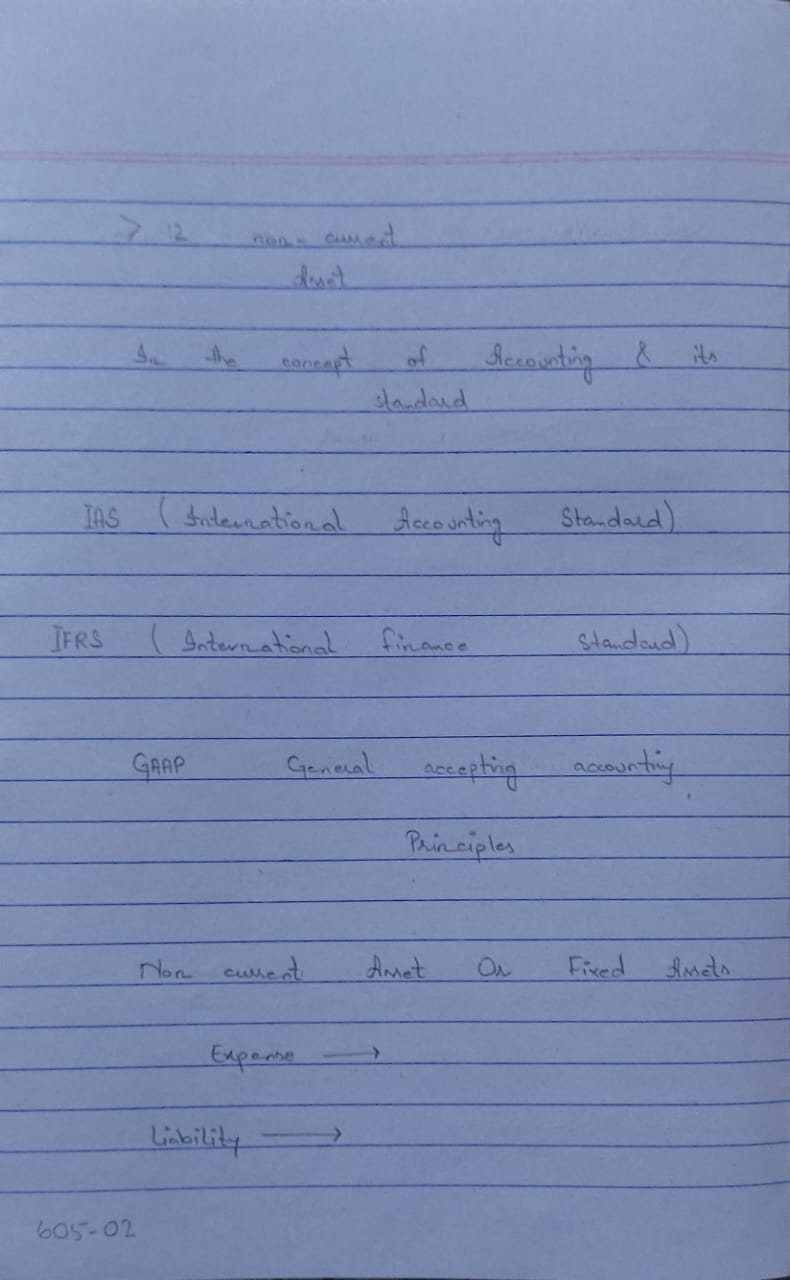 > 12 non-current
Asset
In the concept of Accounting & its
standard
IAS (International Accounting Standard)
IFRS (International finance Standard)
GAAP General accepting accounting
Principles
Non current Asset Or Fixed Assets
Expense →
Liability →
605-02